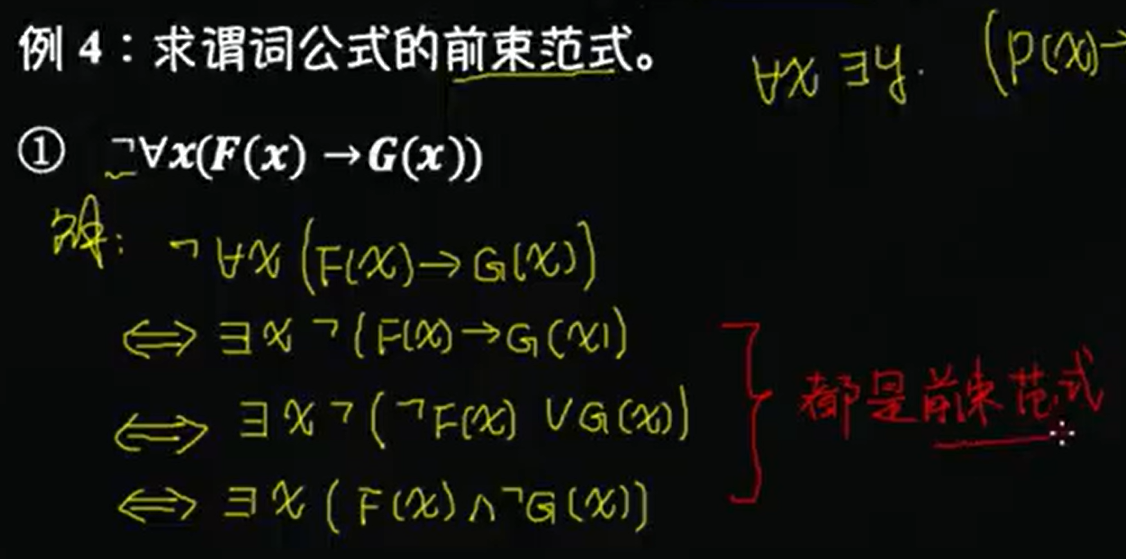 例 4：求谓词公式的前束范式。
∀x ∃y. (P(x)→
① ¬∀x(F(x) →G(x))
解: ¬∀x (F(x)→G(x))
⇔ ∃x ¬(F(x)→G(x))
⇔ ∃x ¬(¬F(x) ∨G(x))
⇔ ∃x (F(x)∧¬G(x))
都是前束范式